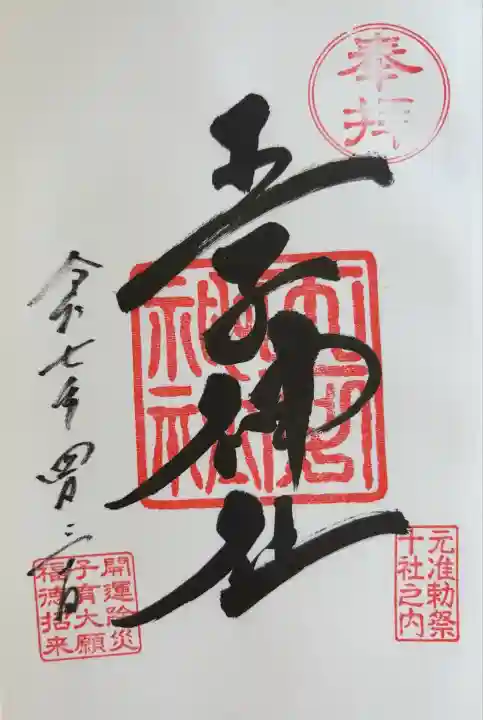 奉拝
王子神社
令和七年四月
元准勅祭
十社之内
開運除災
子育大願
福徳招来